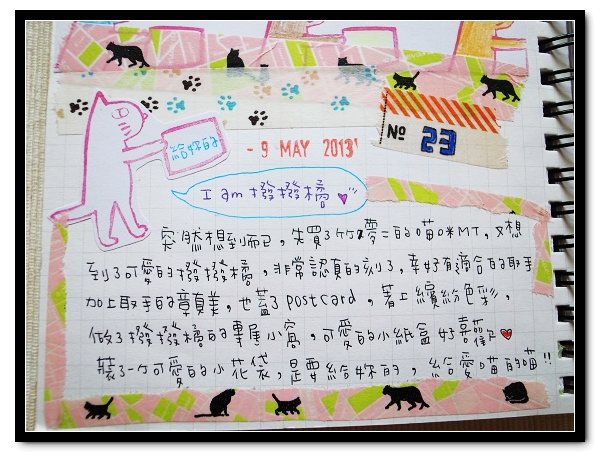 給妳的
- 9 MAY 2013
No 23
I am 撥撥橘
突然想到而已,先買了竹久夢二的喵咪MT,又想
到了可愛的撥撥橘,非常認真的刻了,幸好有適合的取手
加上取手的章真美,也蓋了postcard,著上繽紛色彩,
做了撥撥橘的專屬小窩,可愛的小紙盒好喜歡
裝了一個可愛的小花袋,是要給妳的,給愛喵的喵!!